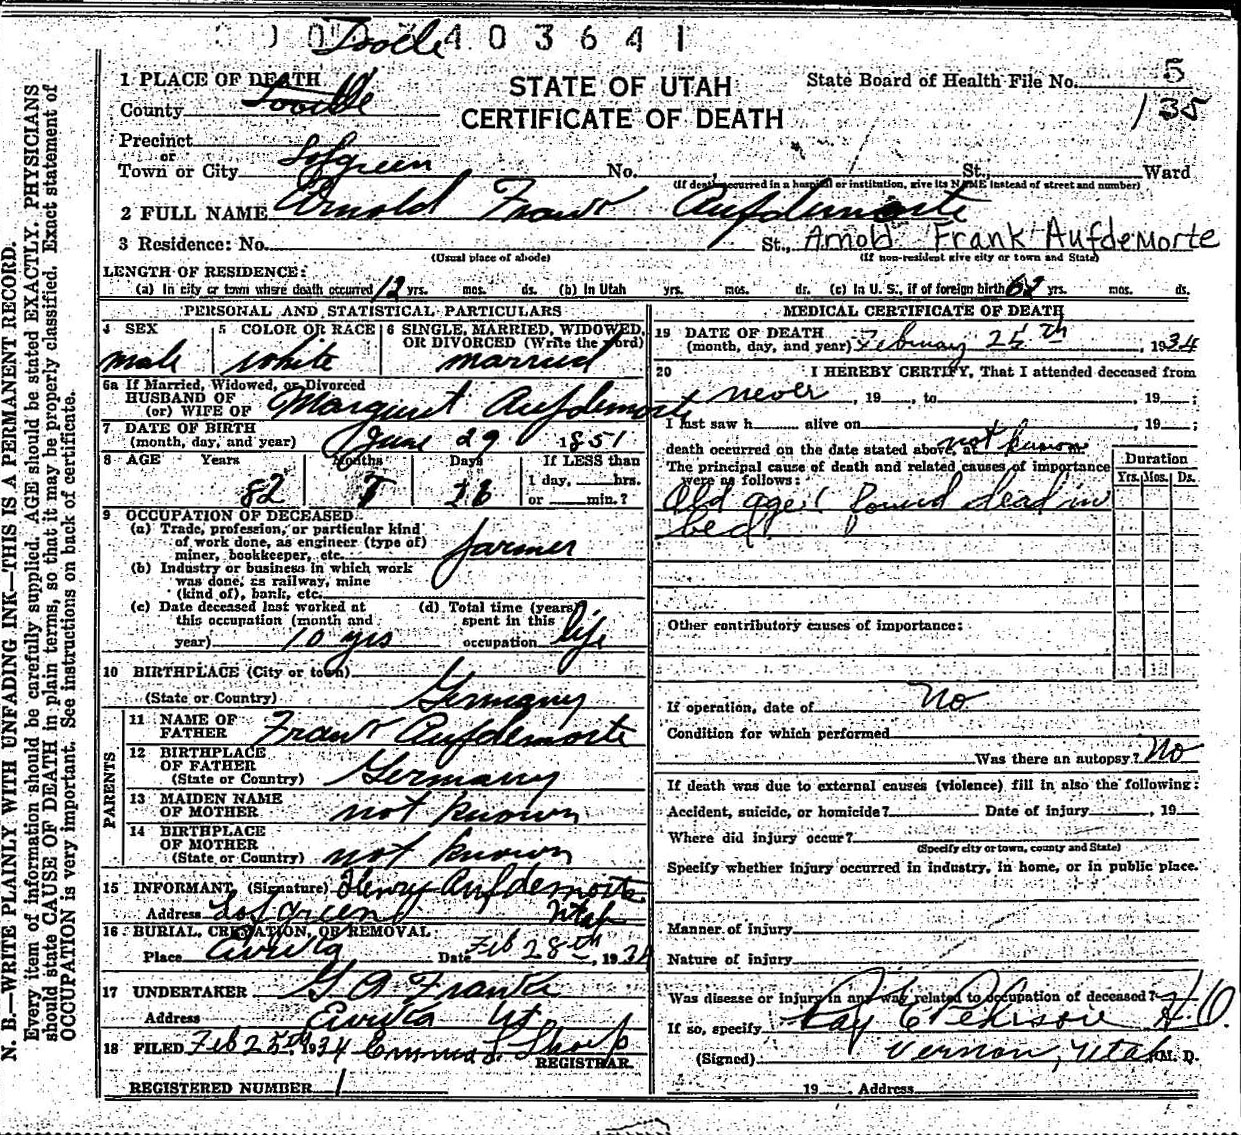 403641
Tooele
1 PLACE OF DEATH
County Tooele
STATE OF UTAH
CERTIFICATE OF DEATH
State Board of Health File No. 5
135
Precinct
or
Town or City Lofgreen No. St., Ward
(If death occurred in a hospital or institution, give its NAME instead of street and number)
2 FULL NAME Arnold Frank Aufdemorte
3 Residence: No. St., Arnold Frank AufdeMorte
(Usual place of abode) (If non-resident give city or town and State)
LENGTH OF RESIDENCE:
(a) In city or town where death occurred 12 yrs. mos. ds. (b) In Utah yrs. mos. dr. (c) In U. S., if of foreign birth 62 yrs. mos. ds.
PERSONAL AND STATISTICAL PARTICULARS
4 SEX
male
5 COLOR OR RACE
white
6 SINGLE, MARRIED, WIDOWED,
OR DIVORCED (Write the word)
married
6a If Married, Widowed, or Divorced
HUSBAND OF
(or) WIFE OF Margaret Aufdemorte
7 DATE OF BIRTH
(month, day, and year) June 29 1851
8 AGE Years Months Days If LESS than
82 7 26 1 day, hrs.
or min.?
9 OCCUPATION OF DECEASED
(a) Trade, profession, or particular kind
of work done, as engineer (type of)
miner, bookkeeper, etc. farmer
(b) Industry or business in which work
was done, as railway, mine
(kind of), bank, etc.
(c) Date deceased last worked at
this occupation (month and
year) 10 yrs
(d) Total time (years)
spent in this
occupation life
10 BIRTHPLACE (City or town)
(State or Country) Germany
PARENTS
11 NAME OF
FATHER Frank Aufdemorte
12 BIRTHPLACE
OF FATHER
(State or Country) Germany
13 MAIDEN NAME
OF MOTHER not known
14 BIRTHPLACE
OF MOTHER
(State or Country) not known
15 INFORMANT (Signature) Henry Aufdemorte
Address Lofgreen Utah
16 BURIAL, CREMATION, OR REMOVAL
Place Eureka Date Feb 28th, 1934
17 UNDERTAKER G A Franke
Address Eureka Ut
18 FILED Feb 25th, 1934 Emma L. Sharp
REGISTRAR.
REGISTERED NUMBER 1
MEDICAL CERTIFICATE OF DEATH
19 DATE OF DEATH
(month, day, and year) February 25th, 1934
20 I HEREBY CERTIFY, That I attended deceased from
never, 19, to, 19;
I last saw h alive on, 19;
death occurred on the date stated above, at not known
The principal cause of death and related causes of importance
were as follows:
Duration
Yrs. Mos. Ds.
Old age! found dead in
bed!
Other contributory causes of importance:
If operation, date of No
Condition for which performed
Was there an autopsy? No
If death was due to external causes (violence) fill in also the following:
Accident, suicide, or homicide? Date of injury, 19
Where did injury occur?
(Specify city or town, county and State)
Specify whether injury occurred in industry, in home, or in public place.
Manner of injury
Nature of injury
Was disease or injury in any way related to occupation of deceased?
If so, specify
Ray E H.O.
(Signed) Vernon, Utah M. D.
19 Address
N. B.—WRITE PLAINLY WITH UNFADING INK—THIS IS A PERMANENT RECORD.
Every item of information should be carefully supplied. AGE should be stated EXACTLY. PHYSICIANS
should state CAUSE OF DEATH in plain terms, so that it may be properly classified. Exact statement of
OCCUPATION is very important. See instructions on back of certificate.